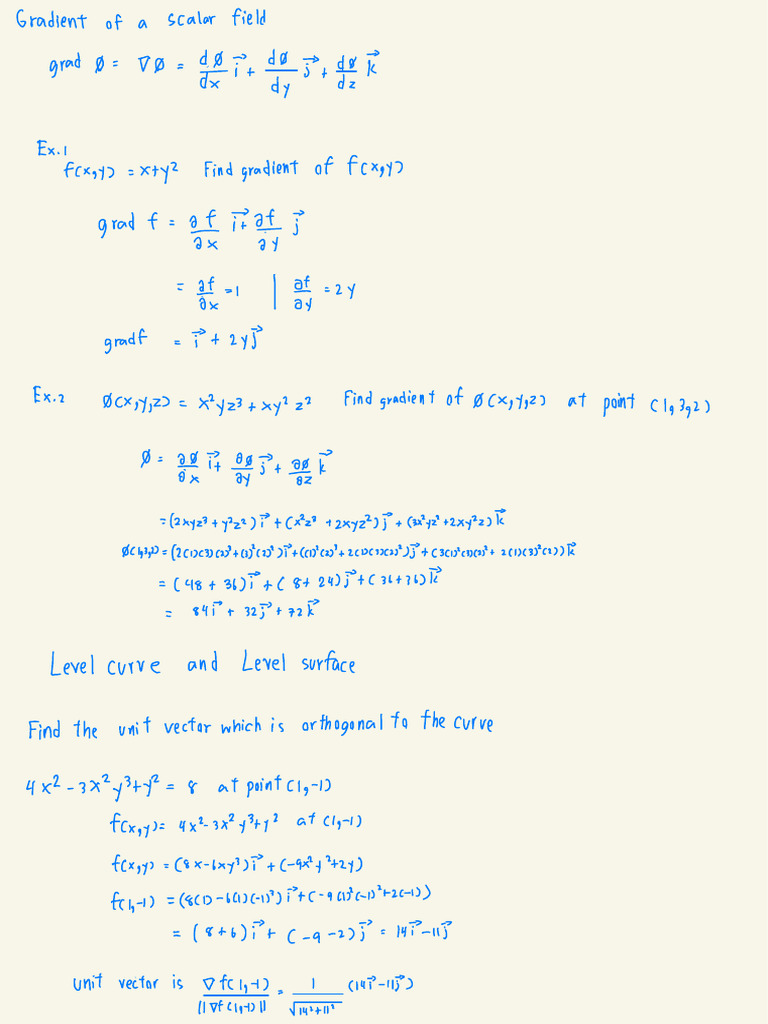 Gradient of a scalar field
grad Ø = ∇Ø = dØ/dx i⃗ + dØ/dy j⃗ + dØ/dz k⃗
Ex.1
f(x,y) = x+y² Find gradient of f(x,y)
grad f = ∂f/∂x i⃗ + ∂f/∂y j⃗
= ∂f/∂x = 1 | ∂f/∂y = 2y
gradf = i⃗ + 2yj⃗
Ex.2 Ø(x,y,z) = x²yz³ + xy²z² Find gradient of Ø(x,y,z) at point (1,3,2)
Ø = ∂Ø/∂x i⃗ + ∂Ø/∂y j⃗ + ∂Ø/∂z k⃗
= (2xyz³ + y²z²)i⃗ + (x²z³ + 2xyz²)j⃗ + (3x²yz² + 2xy²z)k⃗
Ø(1,3,2) = (2(1)(3)(2)³ + (3)²(2)²)i⃗ + ((1)²(2)³ + 2(1)(3)(2)²)j⃗ + (3(1)²(3)(2)² + 2(1)(3)²(2))k⃗
= (48 + 36)i⃗ + (8 + 24)j⃗ + (36 + 36)k⃗
= 84i⃗ + 32j⃗ + 72k⃗
Level curve and Level surface
Find the unit vector which is orthogonal to the curve
4x² - 3x²y³ + y² = 8 at point (1,-1)
f(x,y) = 4x² - 3x²y³ + y² at (1,-1)
f(x,y) = (8x - 6xy³)i⃗ + (-9x²y² + 2y)
f(1,-1) = (8(1) - 6(1)(-1)³)i⃗ + (-9(1)²(-1)² + 2(-1))
= (8 + 6)i⃗ + (-9 - 2)j⃗ = 14i⃗ - 11j⃗
unit vector is ∇f(1,-1)/||∇f(1,-1)|| = 1/√(14² + 11²) (14i⃗ - 11j⃗)